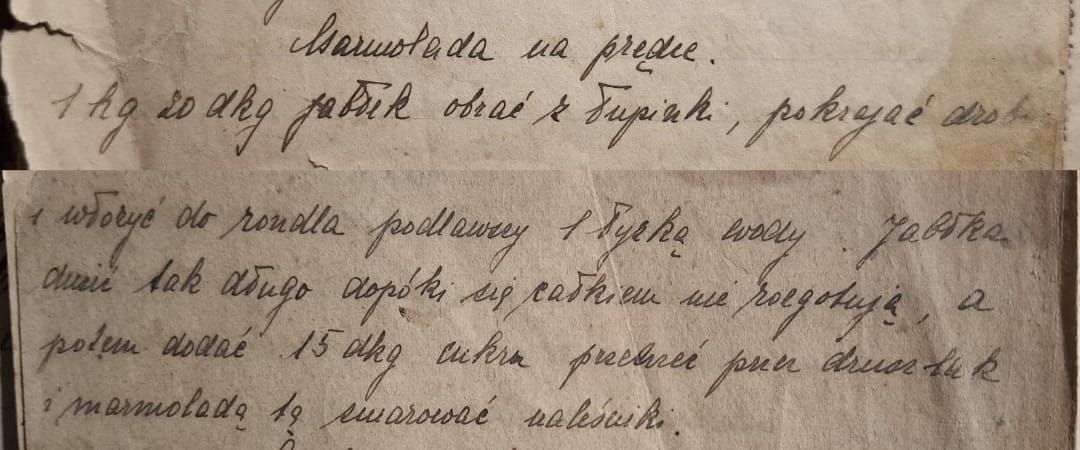 Marmolada na prędce.
1 kg 20 dkg jabłek obrać z łupinki, pokrajać drob
i włożyć do rondla podlawszy 1 łyżką wody. Jabłka
dusić tak długo dopóki się całkiem nie rozgotują, a
potem dodać 15 dkg cukru przetrzeć przez druszlak
i marmoladą tą smarować naleśniki.